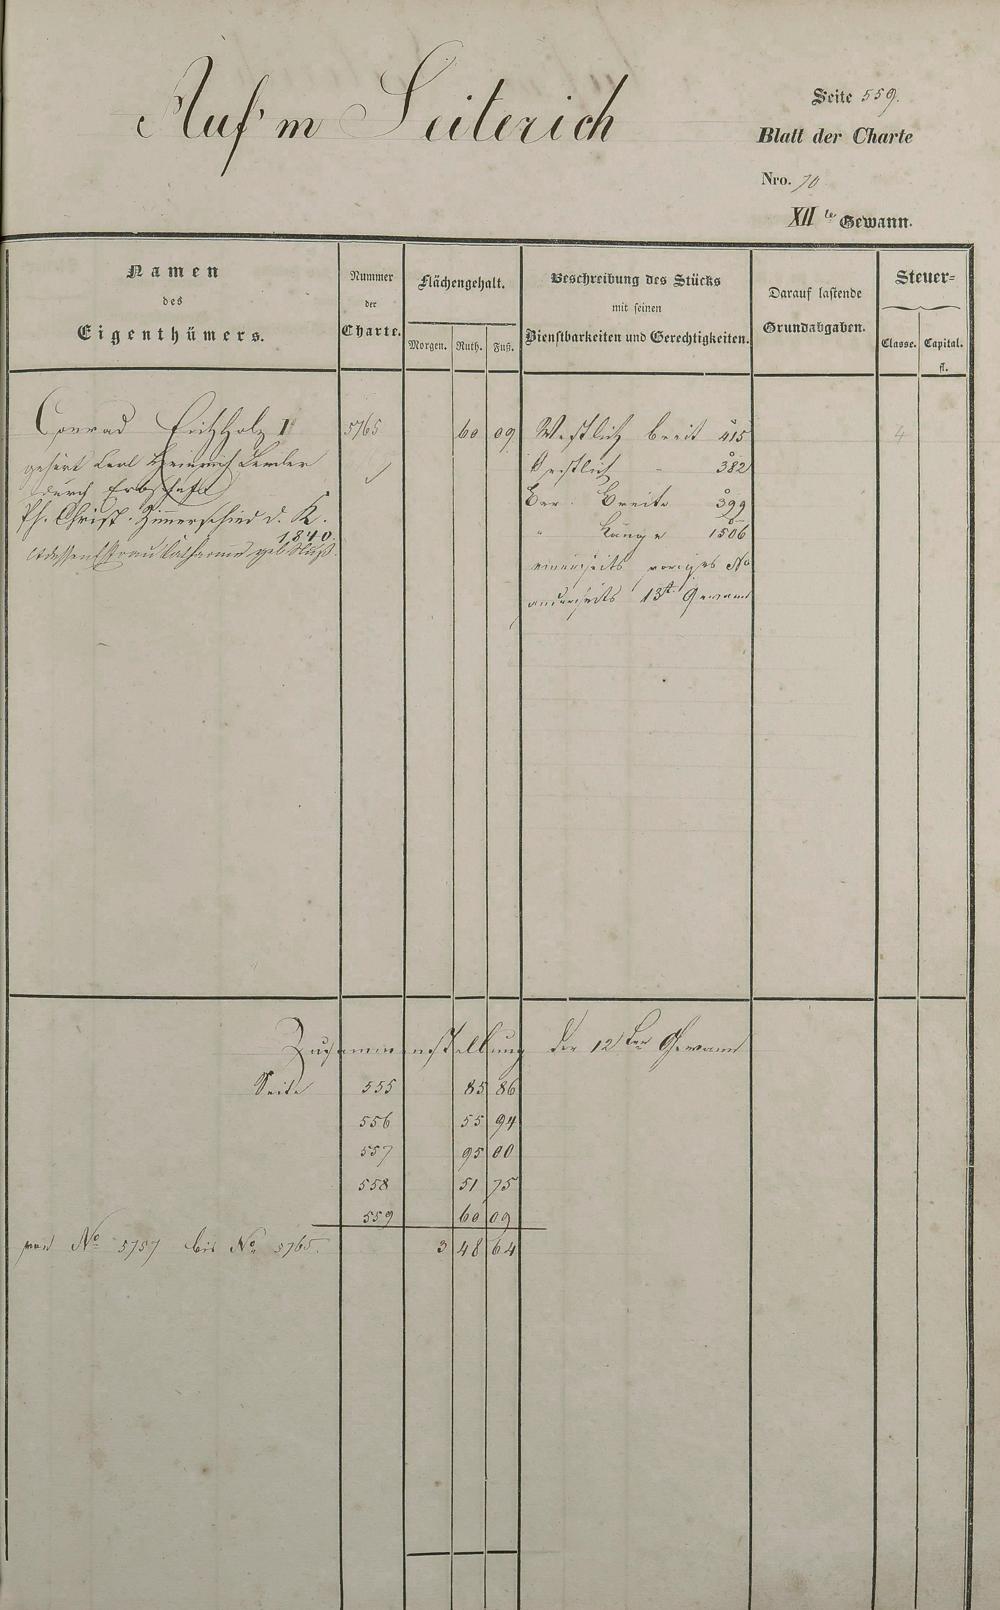 Auf'm Leiterich
Seite 559.
Blatt der Charte
Nro. 70
XII te Gewann.
Namen
des
Eigenthümers.
Nummer
der
Charte.
Flächengehalt.
Morgen. Ruth. Fuß.
Beschreibung des Stücks
mit seinen
Dienstbarkeiten und Gerechtigkeiten.
Darauf lastende
Grundabgaben.
Steuer-
Classe. Capital.
fl.
Conrad I 5765 60 09 Westlich breit 415 4
gehört Carl Heinrich
Oestlich - 382
durch Erbschaft
Ber. Breite 399
Ph. Christ. Zimmerschied d. K.
1840.
" Länge 1506
u dessen Frau Catharine geb.
einerseits voriges No
anderseits 13te Gewann
Zusammenstellung der 12ten Gewann
Seite 555 85 86
556 55 94
557 95 00
558 51 75
559 60 09
von No 5757 bis No 5765. 3 48 64